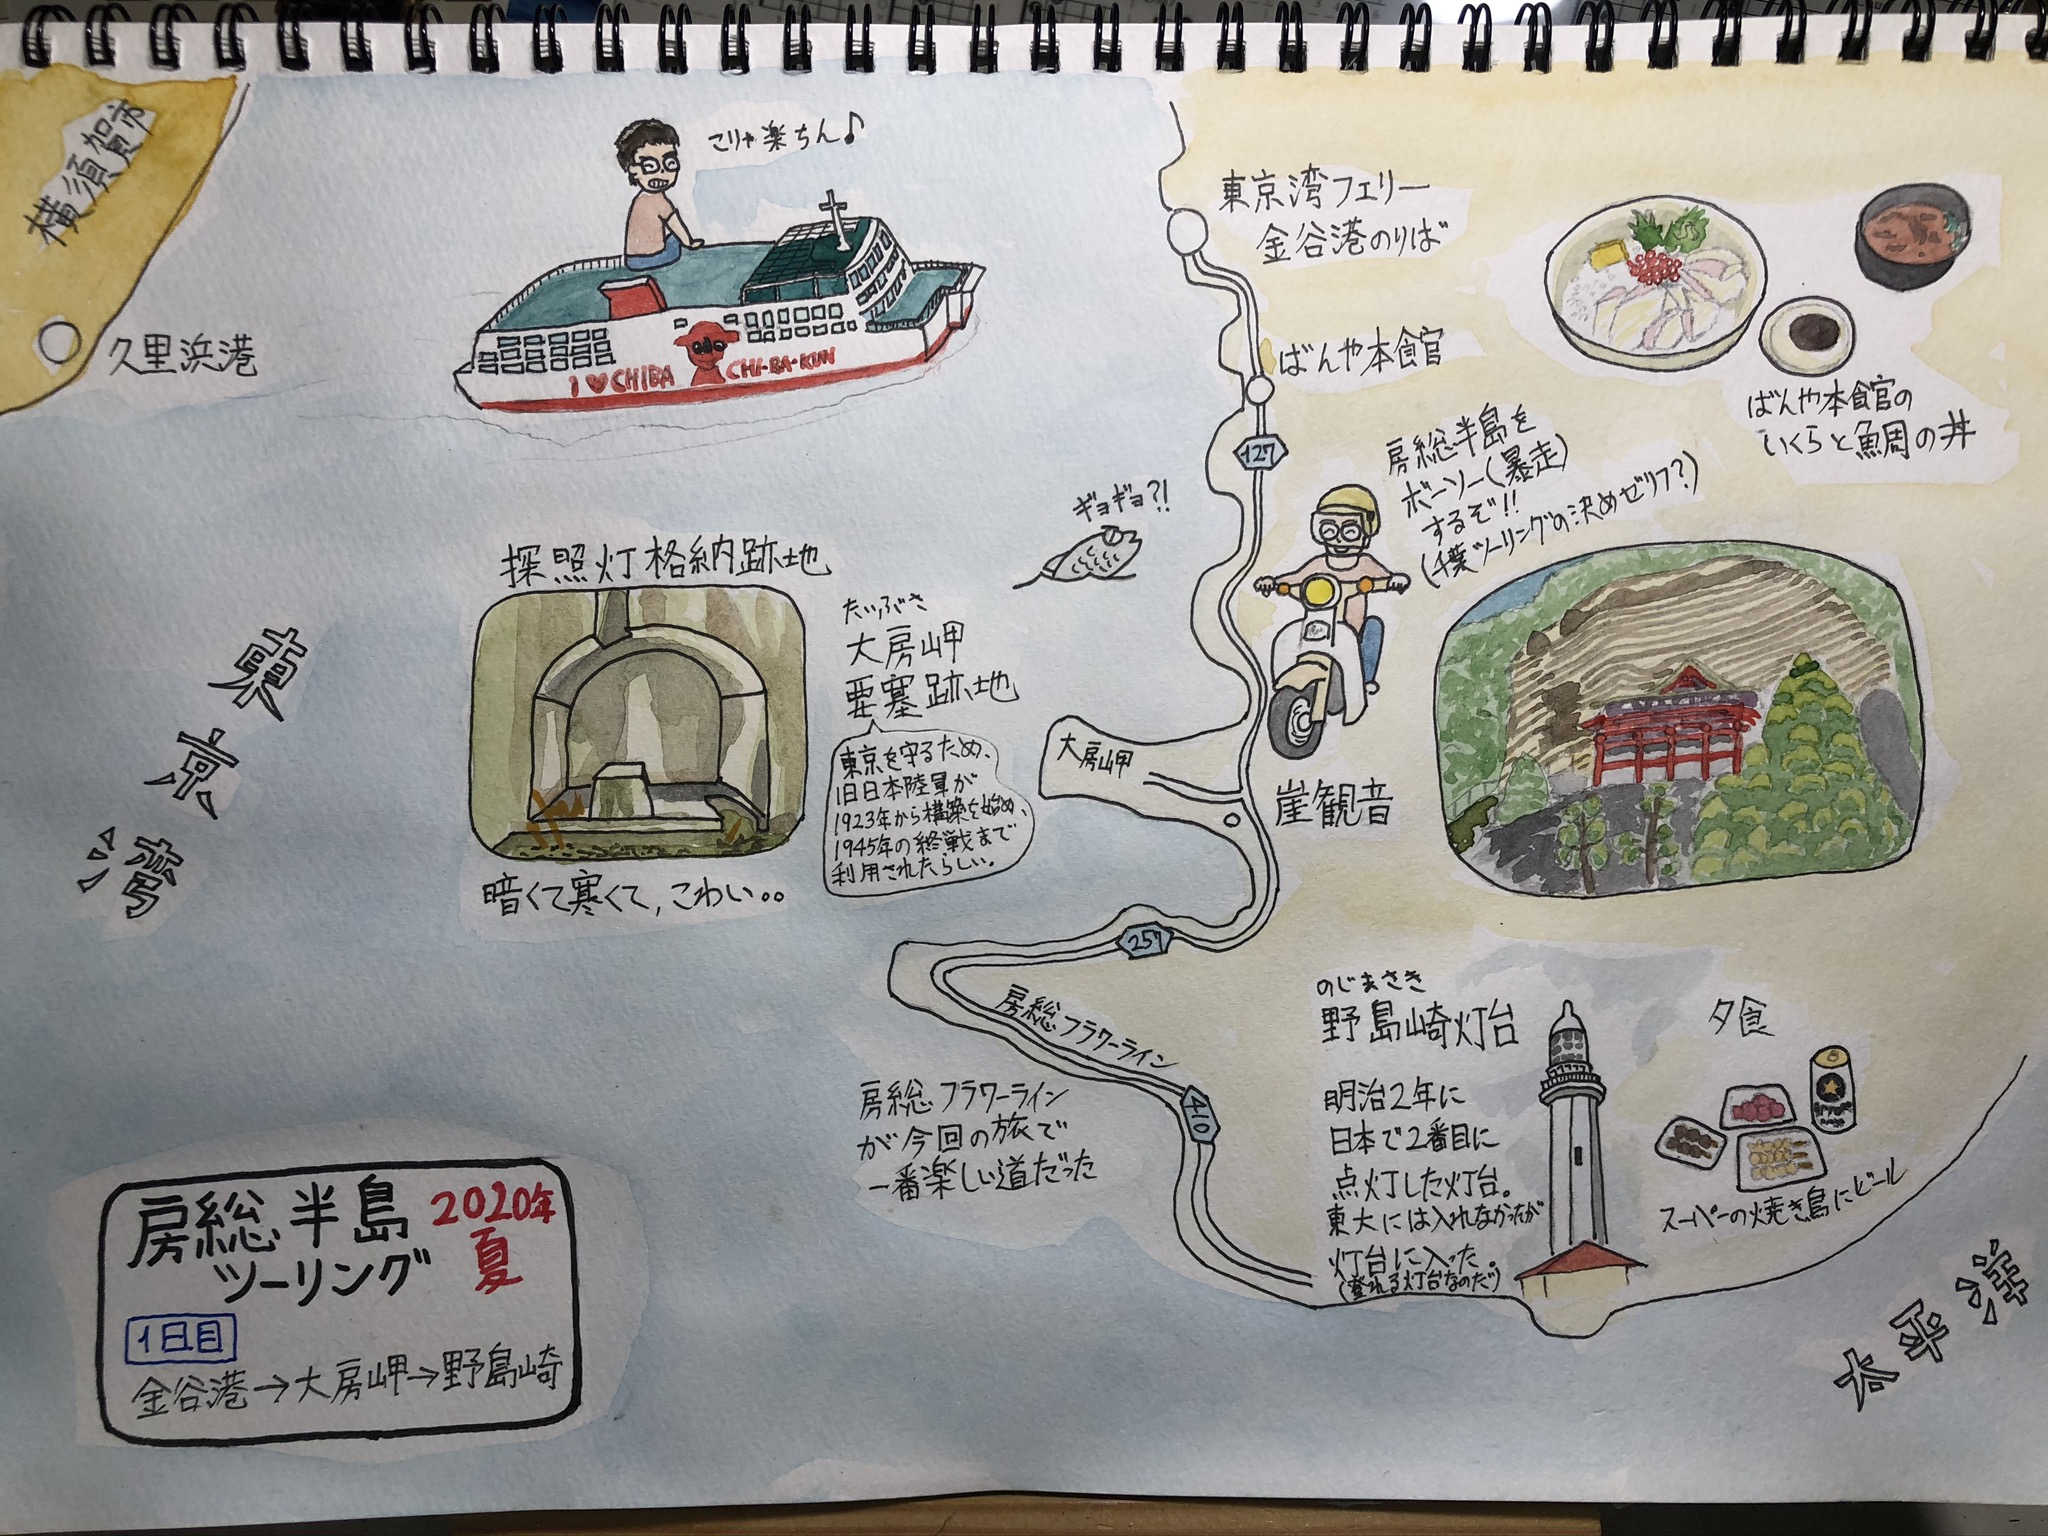 横須賀市
久里浜港
こりゃ楽ちん♪
I♥CHIBA CHI-BA-KUN
東京湾フェリー
金谷港のりば
ばんや本食官
ばんや本食官の
いくらと鯛の丼
127
房総半島を
ボーソー(暴走)
するぞ!!
(千葉ツーリングの決めゼリフ?)
ギョギョ?!
探照灯格納跡地
暗くて寒くて,こわい。。
たいぶさ
大房岬
要塞跡地
東京を守るため、
旧日本陸軍が
1923年から構築を始め、
1945年の終戦まで
利用されたらしい。
大房岬
崖観音
東京湾
257
房総フラワーライン
410
房総フラワーライン
が今回の旅で
一番楽しい道だった
のじまさき
野島崎灯台
明治2年に
日本で2番目に
点灯した灯台。
東大には入れなかったが
灯台に入った。
(登れる灯台なのだ!)
夕食
スーパーの焼き鳥にビール
太平洋
房総半島
ツーリング
2020年
夏
1日目
金谷港→大房岬→野島崎